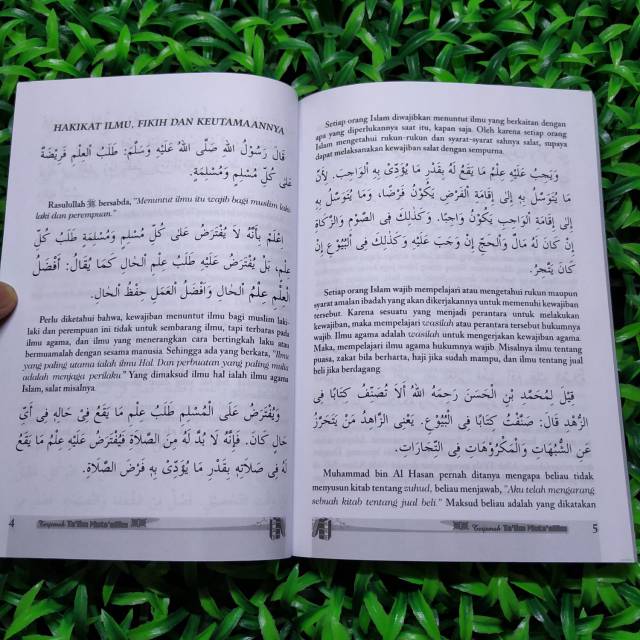 HAKIKAT ILMU, FIKIH DAN KEUTAMAANNYA
قَالَ رَسُوْلُ اللهِ صَلَّى اللهُ عَلَيْهِ وَسَلَّمَ: طَلَبُ الْعِلْمِ فَرِيْضَةٌ
عَلَى كُلِّ مُسْلِمٍ وَمُسْلِمَةٍ.
Rasulullah ﷺ bersabda, "Menuntut ilmu itu wajib bagi muslim laki-
laki dan perempuan."
اِعْلَمْ بِأَنَّهُ لَا يُفْتَرَضُ عَلَى كُلِّ مُسْلِمٍ وَمُسْلِمَةٍ طَلَبُ كُلِّ
عِلْمٍ، بَلْ يُفْتَرَضُ عَلَيْهِ طَلَبُ عِلْمِ الْحَالِ كَمَا يُقَالُ: أَفْضَلُ
الْعِلْمِ عِلْمُ الْحَالِ وَأَفْضَلُ الْعَمَلِ حِفْظُ الْحَالِ.
Perlu diketahui bahwa, kewajiban menuntut ilmu bagi muslim laki-
laki dan perempuan ini tidak untuk sembarang ilmu, tapi terbatas pada
ilmu agama, dan ilmu yang menerangkan cara bertingkah laku atau
bermuamalah dengan sesama manusia. Sehingga ada yang berkata, "Ilmu
yang paling utama ialah ilmu Hal. Dan perbuatan yang paling mulia
adalah menjaga perilaku." Yang dimaksud ilmu hal ialah ilmu agama
Islam, salat misalnya.
وَيُفْتَرَضُ عَلَى الْمُسْلِمِ طَلَبُ عِلْمِ مَا يَقَعُ فِيْ حَالِهِ فِى أَيِّ
حَالٍ كَانَ. فَإِنَّهُ لَا بُدَّ لَهُ مِنَ الصَّلَاةِ فَيُفْتَرَضُ عَلَيْهِ عِلْمُ مَا يَقَعُ
لَهُ فِى صَلَاتِهِ بِقَدْرِ مَا يُؤَدِّىْ بِهِ فَرْضَ الصَّلَاةِ.
4 Terjemah Ta'lim Muta'allim
Setiap orang Islam diwajibkan menuntut ilmu yang berkaitan dengan
apa yang diperlukannya saat itu, kapan saja. Oleh karena setiap orang
Islam mengetahui rukun-rukun dan syarat-syarat sahnya salat, supaya
dapat melaksanakan kewajiban salat dengan sempurna.
وَيَجِبُ عَلَيْهِ عِلْمُ مَا يَقَعُ لَهُ بِقَدْرِ مَا يُؤَدِّىْ بِهِ الْوَاجِبَ. لِأَنَّ
مَا يُتَوَسَّلُ بِهِ إِلَى إِقَامَةِ الْفَرْضِ يَكُوْنُ فَرْضًا، وَمَا يُتَوَسَّلُ بِهِ
إِلَى إِقَامَةِ الْوَاجِبِ يَكُوْنُ وَاجِبًا. وَكَذٰلِكَ فِى الصَّوْمِ وَالزَّكَاةِ
إِنْ كَانَ لَهُ مَالٌ وَالْحَجِّ إِنْ وَجَبَ عَلَيْهِ وَكَذٰلِكَ فِى الْبُيُوْعِ إِنْ
كَانَ يَتَّجِرُ.
Setiap orang Islam wajib mempelajari atau mengetahui rukun maupun
syarat amalan ibadah yang akan dikerjakannya untuk memenuhi kewajiban
tersebut. Karena sesuatu yang menjadi perantara untuk melakukan
kewajiban, maka mempelajari wasilah atau perantara tersebut hukumnya
wajib. Ilmu agama adalah wasilah untuk mengerjakan kewajiban agama.
Maka, mempelajari ilmu agama hukumnya wajib. Misalnya ilmu tentang
puasa, zakat bila berharta, haji jika sudah mampu, dan ilmu tentang jual
beli jika berdagang.
قِيْلَ لِمُحَمَّدِ بْنِ الْحَسَنِ رَحِمَهُ اللهُ أَلَا تُصَنِّفُ كِتَابًا فِى
الزُّهْدِ قَالَ: صَنَّفْتُ كِتَابًا فِى الْبُيُوْعِ. يَعْنِى الزَّاهِدُ مَنْ يَتَحَرَّزُ
عَنِ الشُّبُهَاتِ وَالْمَكْرُوْهَاتِ فِى التِّجَارَاتِ.
Muhammad bin Al Hasan pernah ditanya mengapa beliau tidak
menyusun kitab tentang zuhud, beliau menjawab, "Aku telah mengarang
sebuah kitab tentang jual beli." Maksud beliau adalah yang dikatakan
Terjemah Ta'lim Muta'allim 5